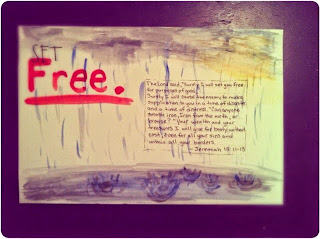 SET
Free.
The Lord said, "Surely I will set you free
for purposes of good;
Surely I will cause the enemy to make
supplication to you in a time of disaster
and a time of distress. "Can anyone
smash iron, Iron from the north, or
bronze? "Your wealth and your
treasures I will give for booty without
cost, Even for all your sins and
within all your borders.
- Jeremiah 15:11-13